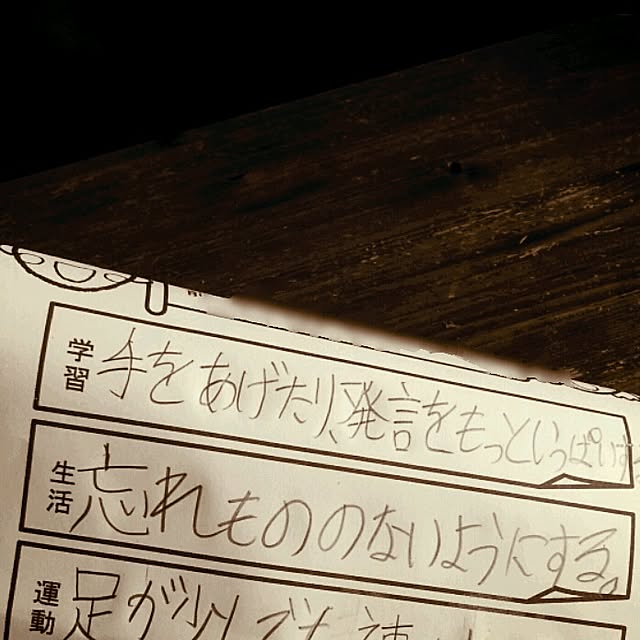 学習
手をあげたり、発言をもっといっぱいする
生活
忘れもののないようにする。
運動
足が少しでも速